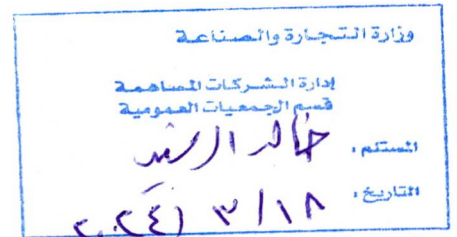 وزارة التجارة والصناعة
إدارة الشركات المساهمة
قسم الجمعيات العمومية
المستلم: خالد الرشيد
التاريخ: ١٨/٣/٢٠٢٤